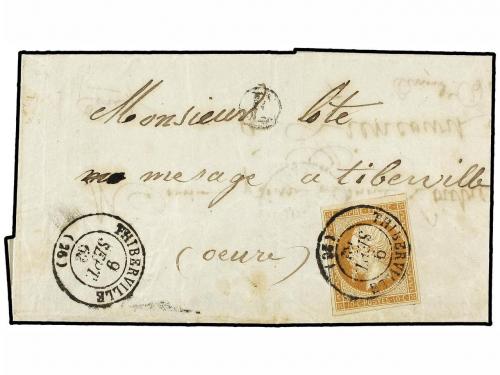 Monsieur lôte
mesage a tiberville
(oeure)
THIBERVILLE
9
SEPT.
62
(26)
THIBERVILLE
9
SEPT.
62
(26)
POSTES 10 C